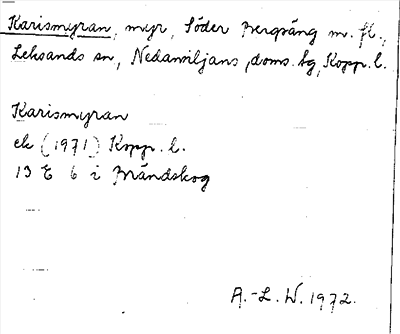 Karismyran, myr, Söder Bergsäng m. fl.,
Leksands sn, Nedansiljans doms. tg, Kopp. l.
Karismyran
ek (1971) Kopp. l.
13 E 6 i Brändskog
A.-L. W. 1972.